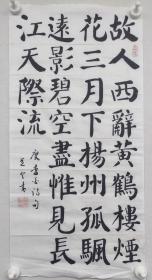 故人西辭黃鶴樓煙
花三月下楊州孤颿
遠影碧空盡惟見長
江天際流
唐李白詩句